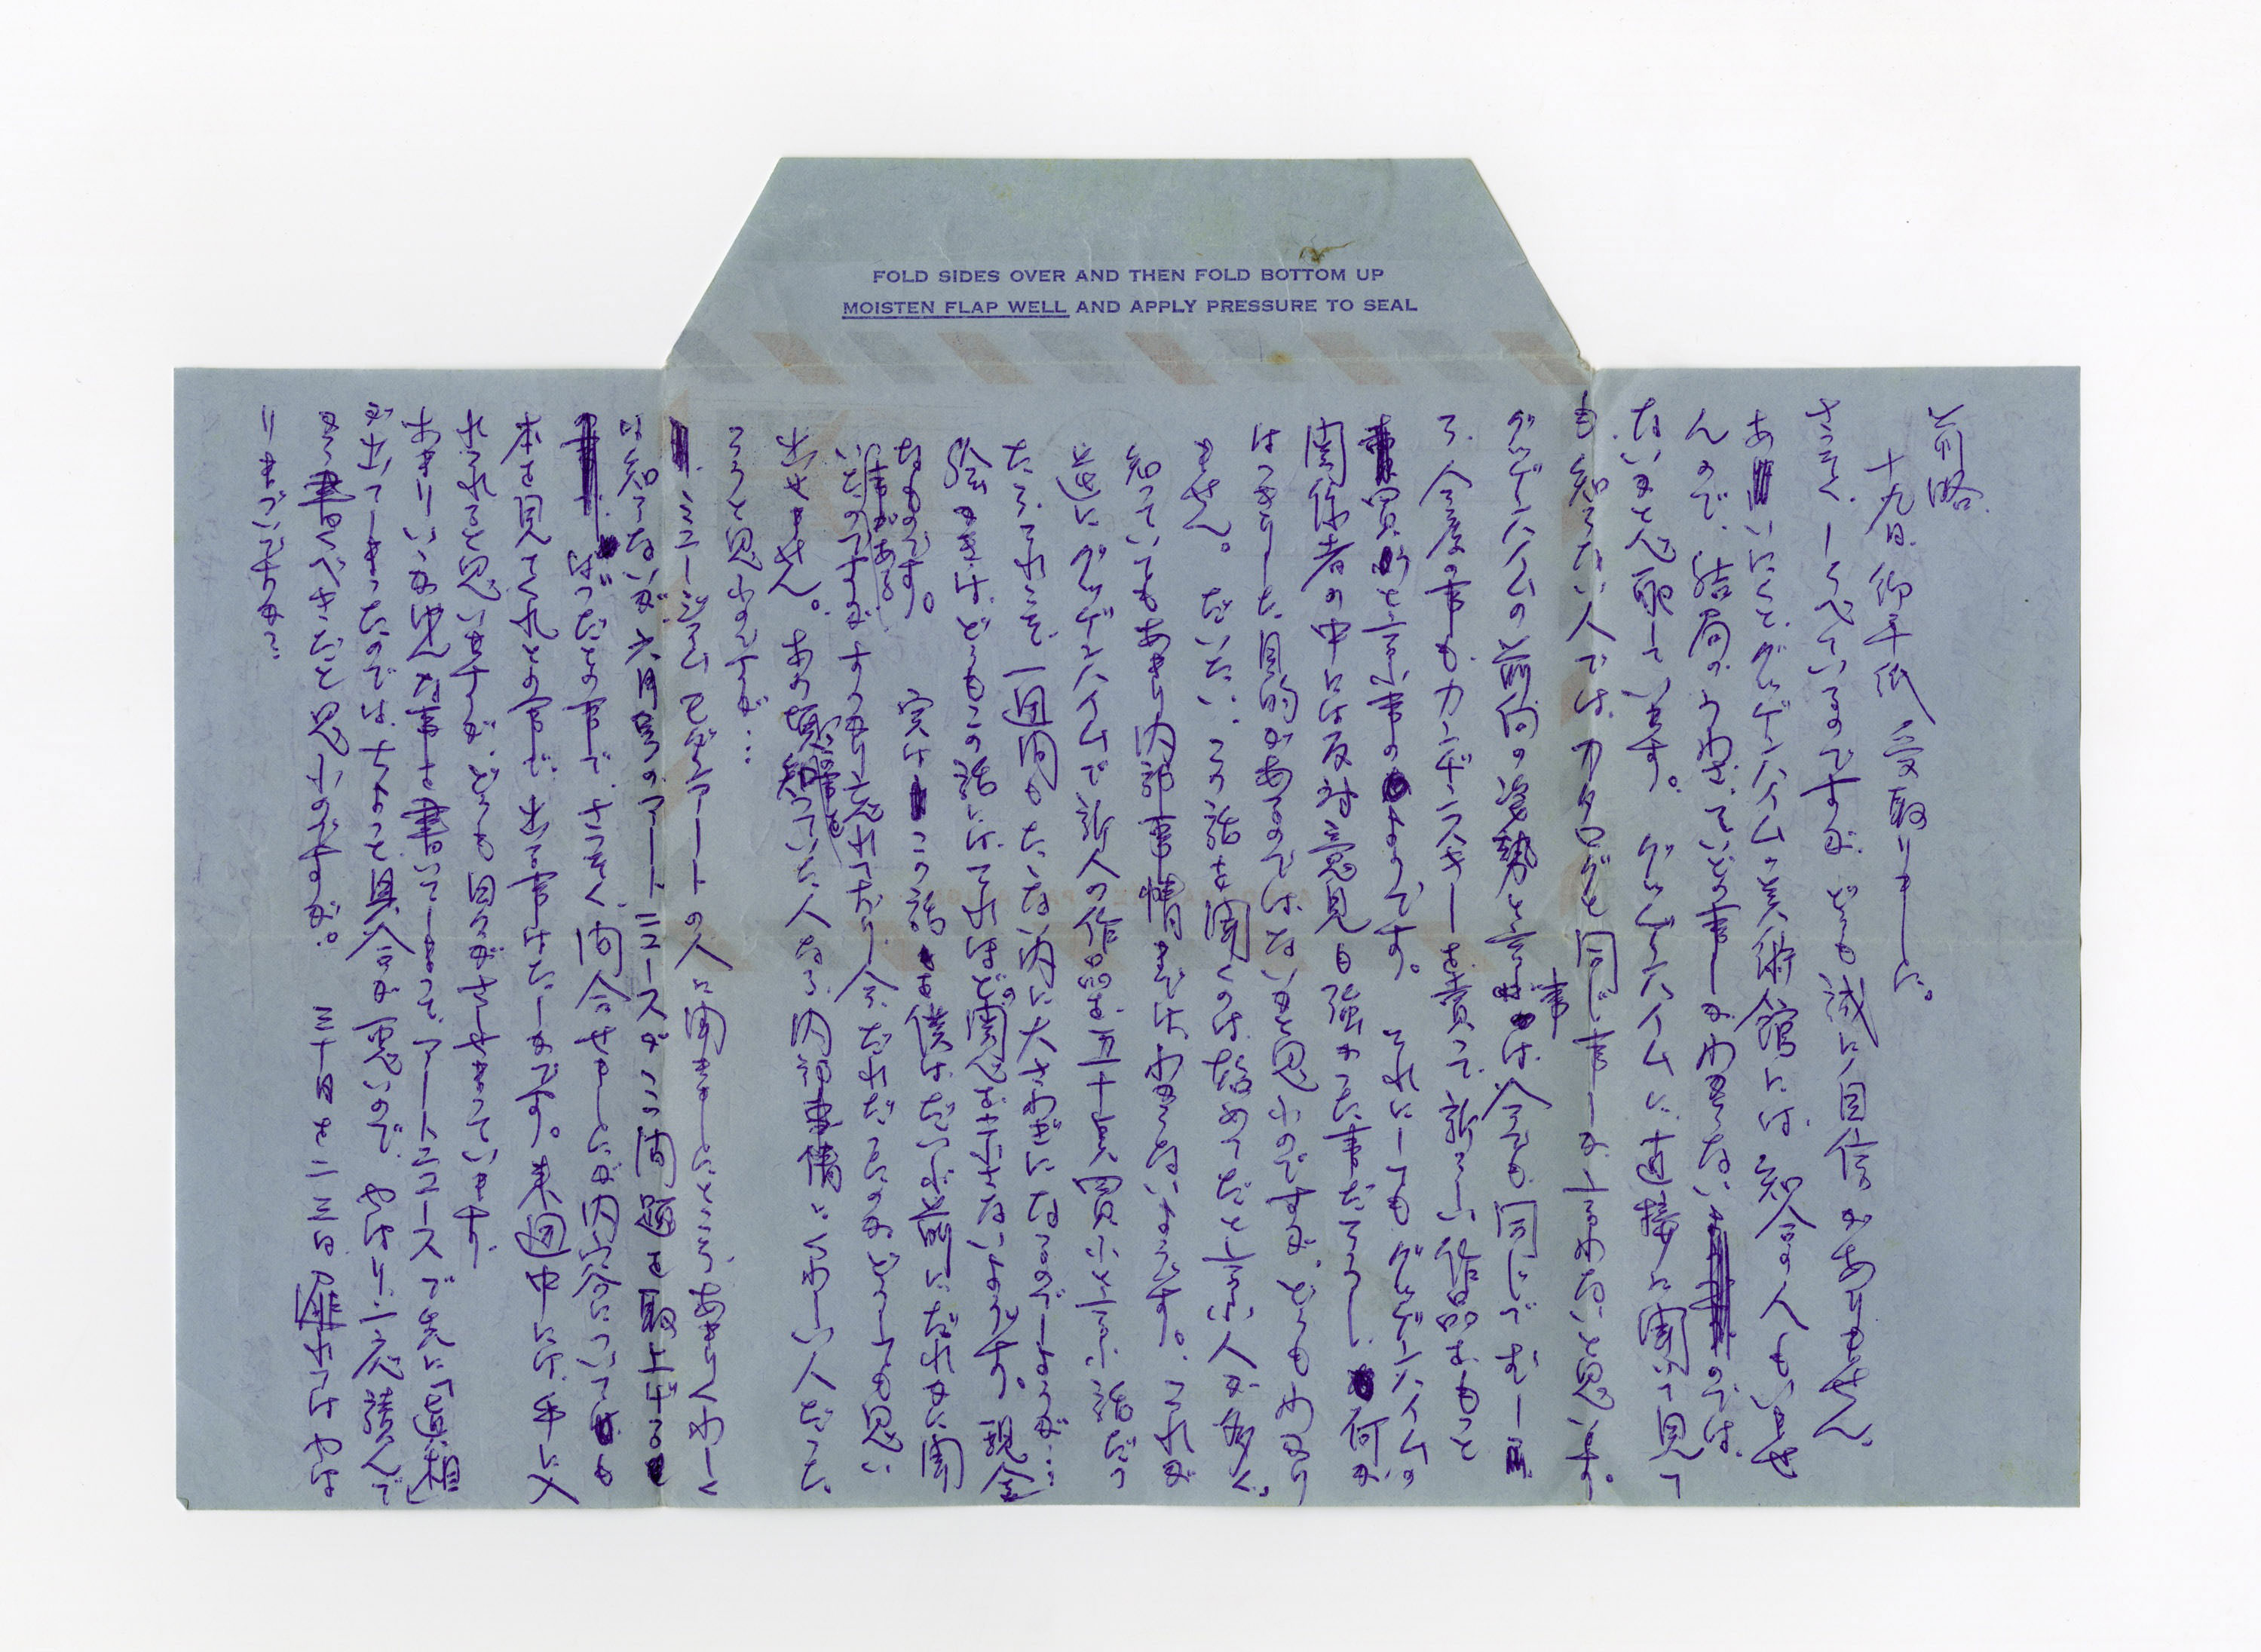 FOLD SIDES OVER AND THEN FOLD BOTTOM UP
MOISTEN FLAP WELL AND APPLY PRESSURE TO SEAL
前略
十九日、御手紙受取りました。
さっそく、しらべているのですが、どうも誠に自信がありません。
あいにくと、グッゲンハイム美術館には、知合の人もいませ
んので、結局のうわさていどの事しかわからないのでは
ないかと心配しています。グッゲンハイムに直接に聞いて見て
も、知らない人では、カタログと同じ事しか言わないと思います。
グッゲンハイムの前向の姿勢と言う事は、今でも同じでむし
ろ、今度の事も、カンディンスキーを売って、新らしい作品をもっと
買ふと言ふ事のようです。それにしても、グッゲンハイムの
関係者の中には反対意見も強かった事だろうし、何か
はっきりした目的があるのではないかと思ふのですが、どうもわかり
ません。だいたい、この話を聞くのは始めてだと言ふ人が多く、
知っていてもあまり内部事情まではわからないようです。これが
逆にグッゲンハイムで新人の作品を五十点買ふと言ふ話だっ
たら、それこそ一週間もたたない内に大さわぎになるのでしょうが……
絵かきは、どうもこの話にはそれほどの関心をしめさないようです。現金
なものです。 実はこの話を僕はだいぶ前にだれかに聞
いた事があるのですが、すっかり忘れており、今、だれだったのかどうしても思い
出せません。あの頃に知っていた人なら、内部事情にくわしい人だった
ろうと思ふのですが…
ミュージアム モダンアートの人に聞きましたところ、あまりくわしく
は知らないが、六月号のアートニュースがこの問題を取上げる
はづだとの事で、さっそく、問合せましたが、内容については
本を見てくれとの事で、出る事はたしかです。来週中には、手に入
れられると思いますが、どうも自分がさきばしっています。
あまりいいかげんな事を書いてしまって、アートニュースで先に真相
が出てしまったのでは、ちょっと具合が悪いので、やはり一応読んで
から書くべきだと思ふのですが。 三十日を二三日
りまづいでしょうか。